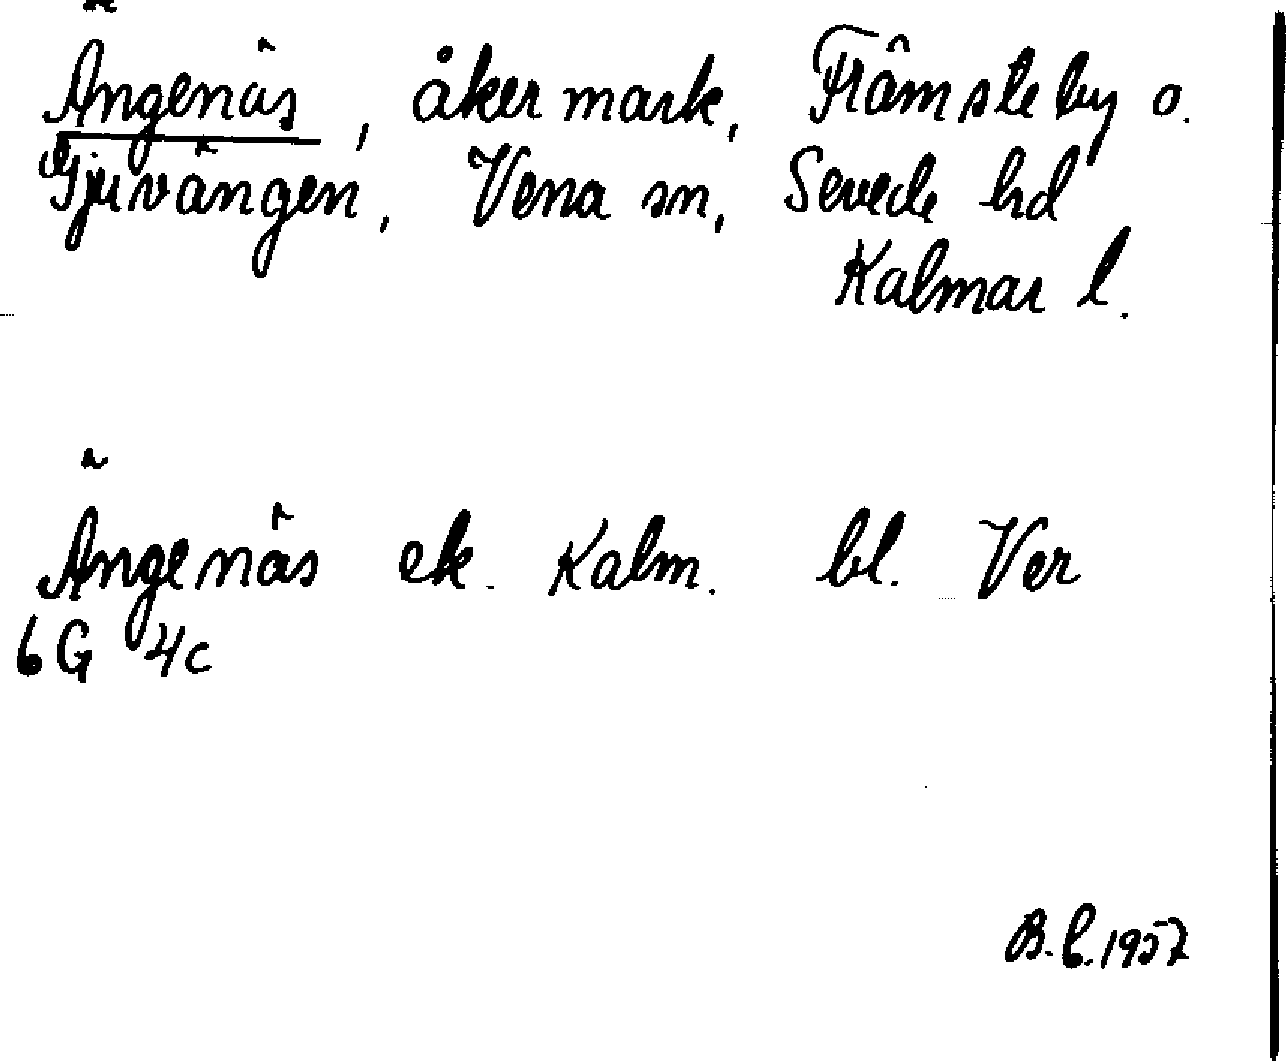 Ängenäs, åkermark, Främsteby o.
Gjuvängen, Vena sn, Sevede hd
Kalmar l.
Ängenäs ek. Kalm. bl. Ver
6G 4c
B.b. 1957